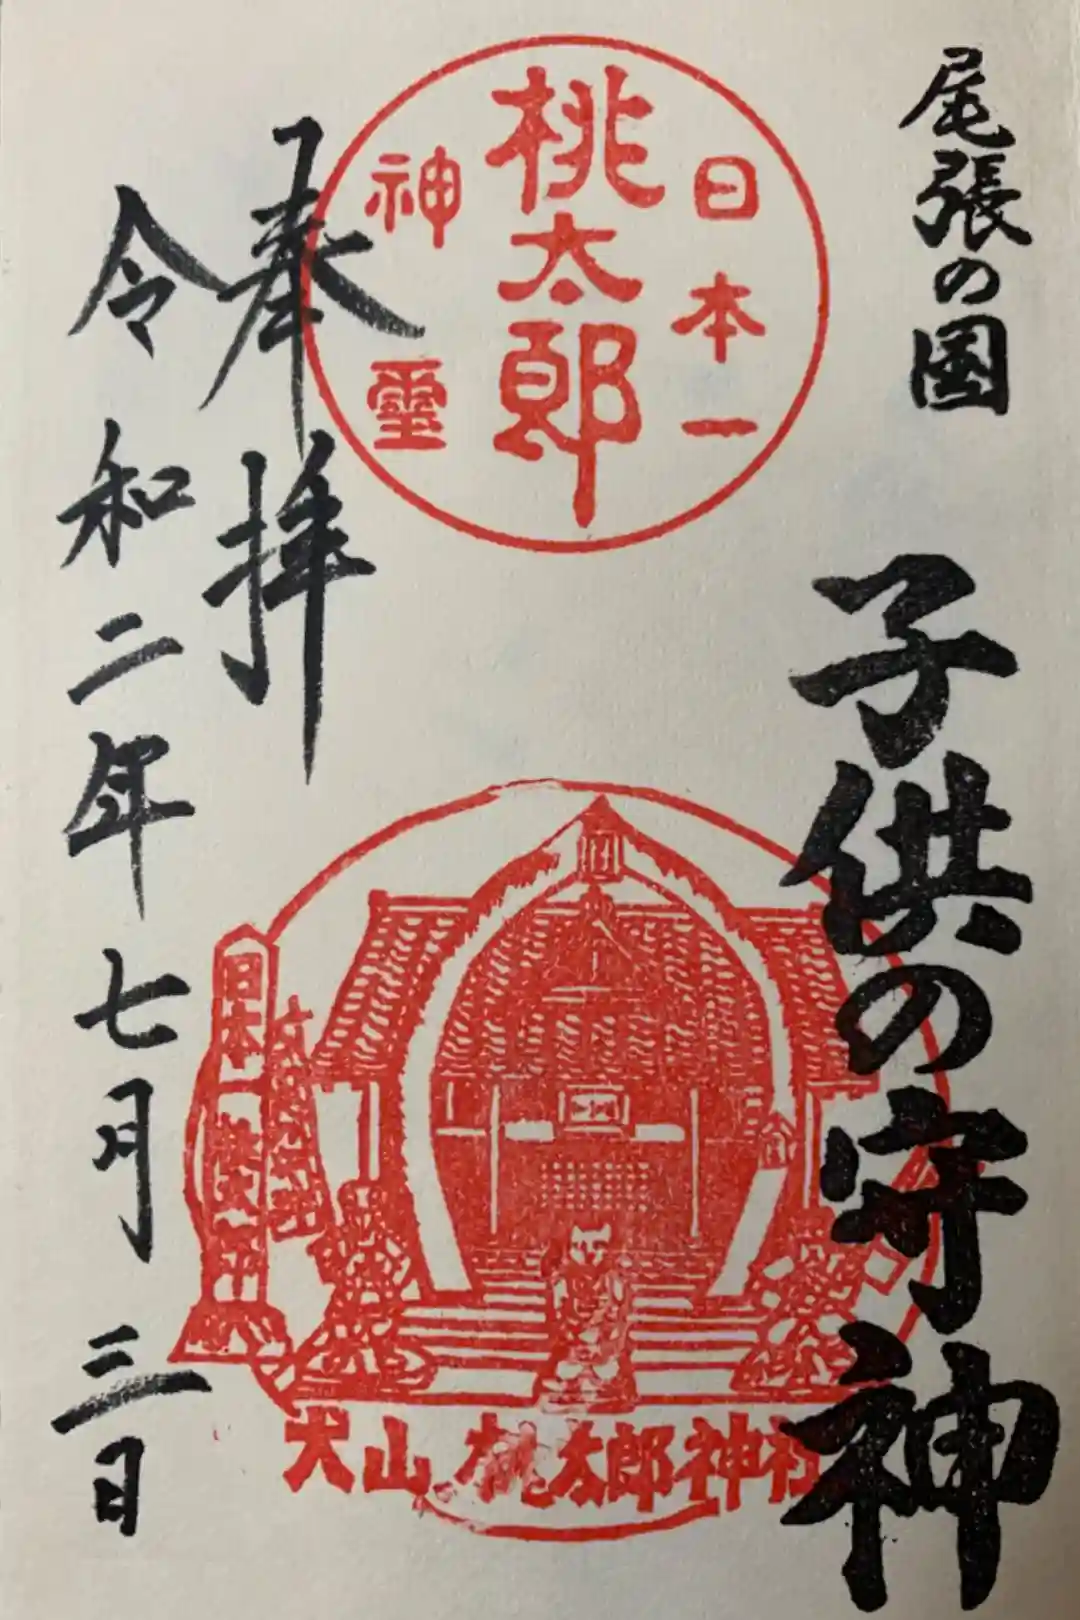 尾張の國
子供の守神
日本一
桃太郎
神靈
奉拝
令和二年七月三日
日本一
犬山 桃太郎神社